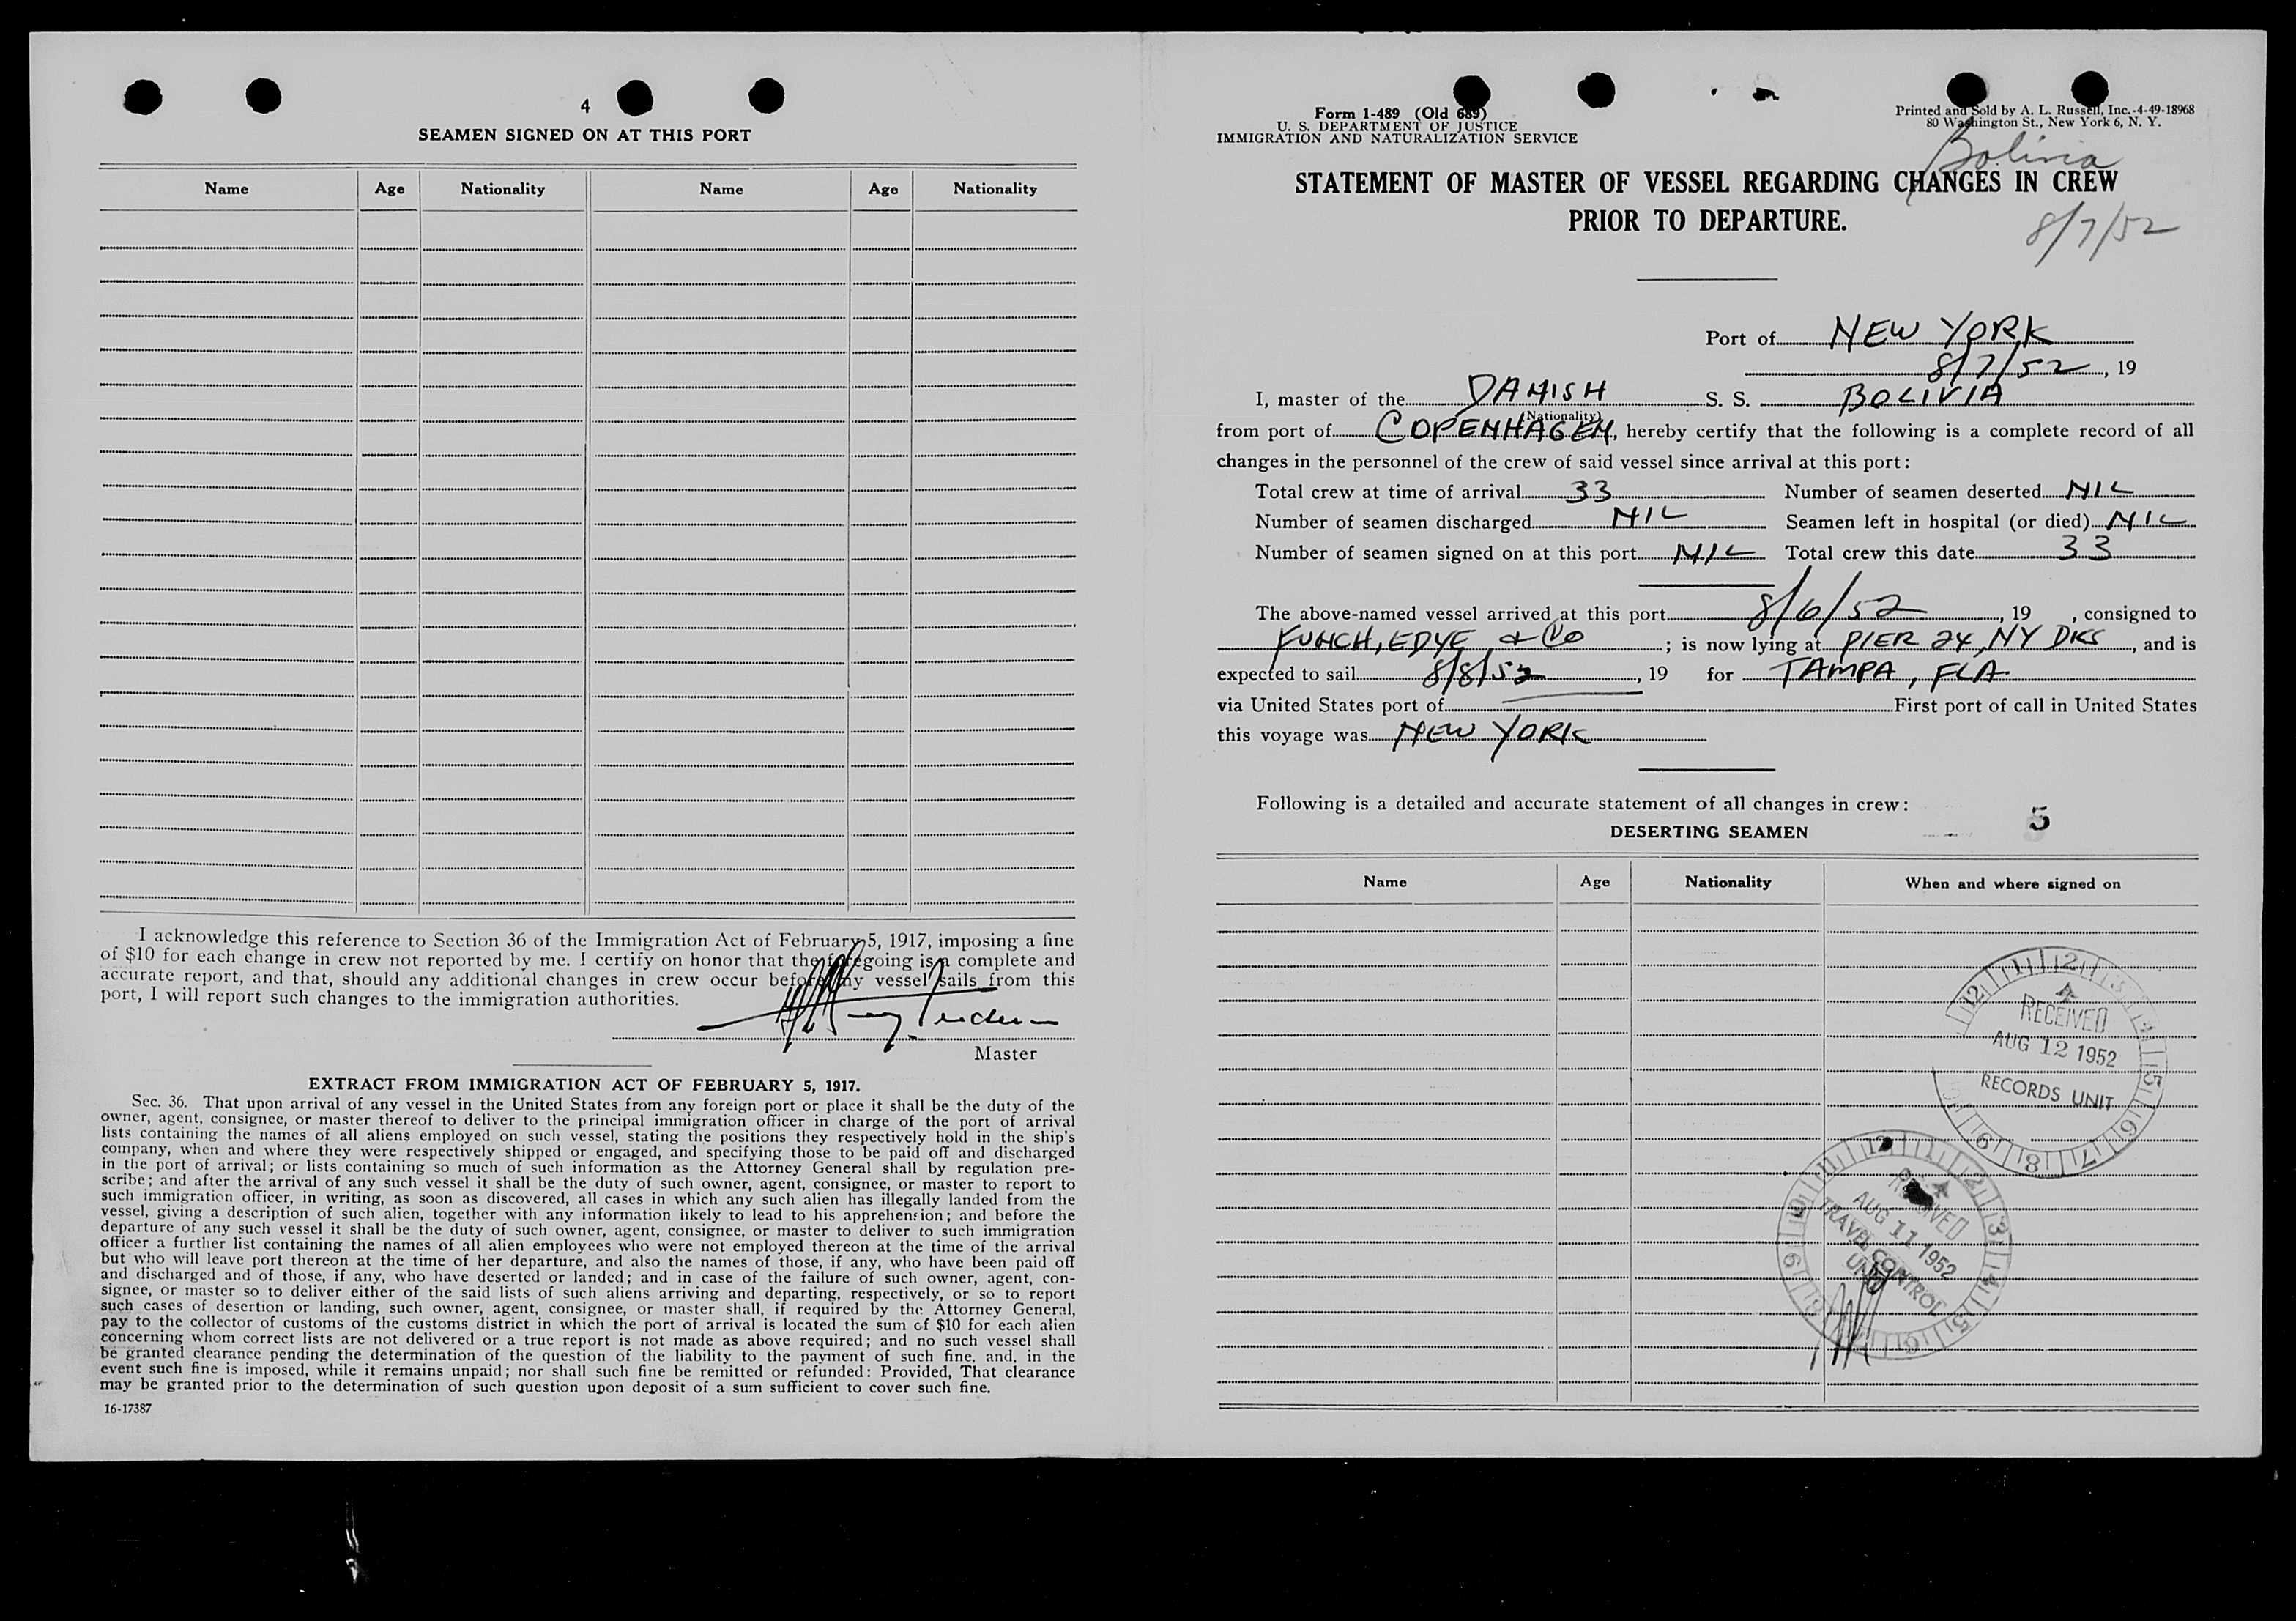 4
SEAMEN SIGNED ON AT THIS PORT
Name Age Nationality Name Age Nationality
I acknowledge this reference to Section 36 of the Immigration Act of February 5, 1917, imposing a fine
of $10 for each change in crew not reported by me. I certify on honor that the foregoing is a complete and
accurate report, and that, should any additional changes in crew occur before my vessel sails from this
port, I will report such changes to the immigration authorities.
Master
EXTRACT FROM IMMIGRATION ACT OF FEBRUARY 5, 1917.
Sec. 36. That upon arrival of any vessel in the United States from any foreign port or place it shall be the duty of the
owner, agent, consignee, or master thereof to deliver to the principal immigration officer in charge of the port of arrival
lists containing the names of all aliens employed on such vessel, stating the positions they respectively hold in the ship's
company, when and where they were respectively shipped or engaged, and specifying those to be paid off and discharged
in the port of arrival; or lists containing so much of such information as the Attorney General shall by regulation pre-
scribe; and after the arrival of any such vessel it shall be the duty of such owner, agent, consignee, or master to report to
such immigration officer, in writing, as soon as discovered, all cases in which any such alien has illegally landed from the
vessel, giving a description of such alien, together with any information likely to lead to his apprehension; and before the
departure of any such vessel it shall be the duty of such owner, agent, consignee, or master to deliver to such immigration
officer a further list containing the names of all alien employees who were not employed thereon at the time of the arrival
but who will leave port thereon at the time of her departure, and also the names of those, if any, who have been paid off
and discharged and of those, if any, who have deserted or landed; and in case of the failure of such owner, agent, con-
signee, or master so to deliver either of the said lists of such aliens arriving and departing, respectively, or so to report
such cases of desertion or landing, such owner, agent, consignee, or master shall, if required by the Attorney General,
pay to the collector of customs of the customs district in which the port of arrival is located the sum of $10 for each alien
concerning whom correct lists are not delivered or a true report is not made as above required; and no such vessel shall
be granted clearance pending the determination of the question of the liability to the payment of such fine, and, in the
event such fine is imposed, while it remains unpaid; nor shall such fine be remitted or refunded: Provided, That clearance
may be granted prior to the determination of such question upon deposit of a sum sufficient to cover such fine.
16-17387
Form 1-489 (Old 689)
U. S. DEPARTMENT OF JUSTICE
IMMIGRATION AND NATURALIZATION SERVICE
Printed and Sold by A. L. Russell, Inc.-4-49-18968
80 Washington St., New York 6, N. Y.
Bolivia
STATEMENT OF MASTER OF VESSEL REGARDING CHANGES IN CREW
PRIOR TO DEPARTURE.
8/7/52
Port of NEW YORK
8/7/52, 19
I, master of the DANISH S. S. BOLIVIA
(Nationality)
from port of COPENHAGEN, hereby certify that the following is a complete record of all
changes in the personnel of the crew of said vessel since arrival at this port:
Total crew at time of arrival 33 Number of seamen deserted NIL
Number of seamen discharged NIL Seamen left in hospital (or died) NIL
Number of seamen signed on at this port NIL Total crew this date 33
The above-named vessel arrived at this port 8/6/52, 19 , consigned to
FUNCH, EDYE & Co ; is now lying at PIER 24, NY DKS, and is
expected to sail 8/8/52, 19 for TAMPA, FLA
via United States port of First port of call in United States
this voyage was NEW YORK
Following is a detailed and accurate statement of all changes in crew:
5
DESERTING SEAMEN
Name Age Nationality When and where signed on
RECEIVED
AUG 12 1952
RECORDS UNIT
RECEIVED
AUG 11 1952
TRAVEL CONTROL
UNIT